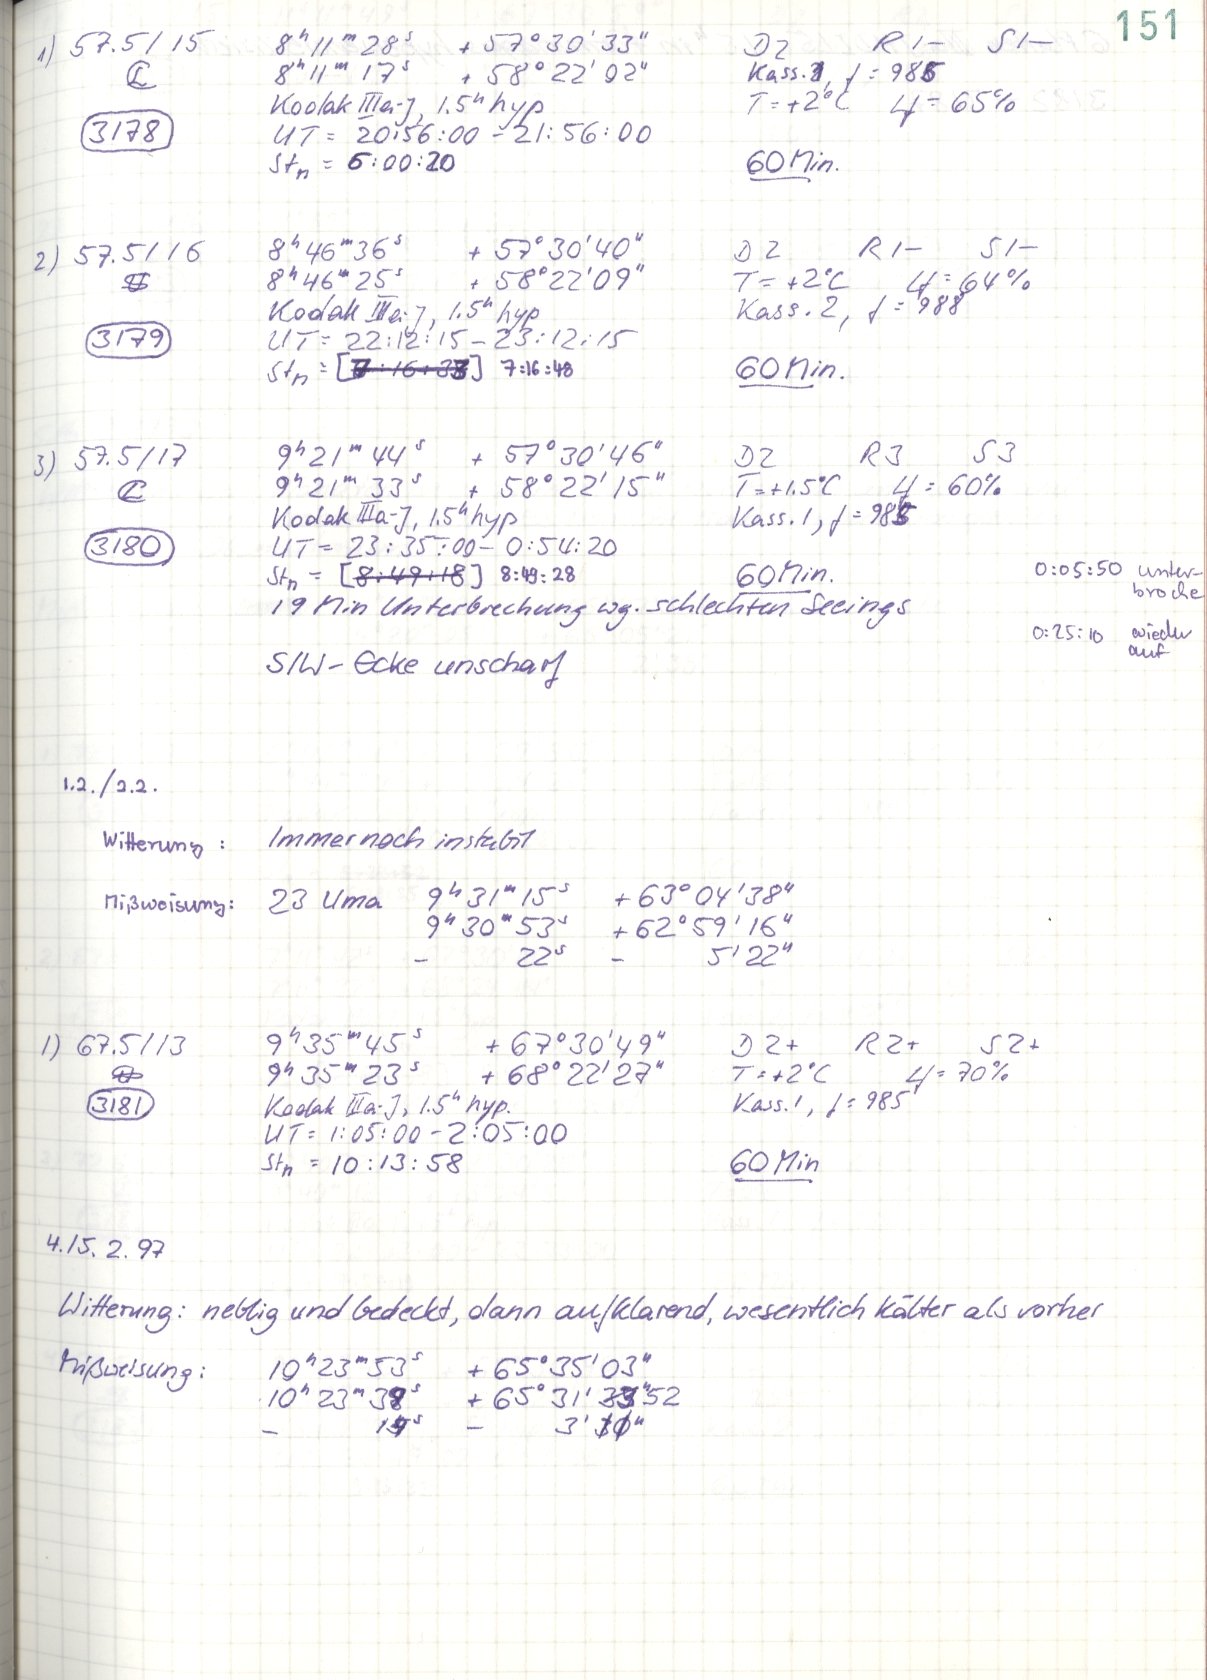 151
1) 57.5/15 8h 11m 28s + 57° 30' 33" D2 R1- S1-
8h 11m 17s + 58° 22' 02" Kass. 1, f = 985
Kodak IIIa-J, 1.5h hyp T = +2°C φ = 65%
3178 UT = 20:56:00 - 21:56:00
Stn = 6:00:20 60 Min.
2) 57.5/16 8h 46m 36s + 57° 30' 40" D2 R1- S1-
8h 46m 25s + 58° 22' 09" T = +2°C φ = 64%
Kodak IIIa-J, 1.5h hyp Kass. 2, f = 988
3179 UT = 22:12:15 - 23:12:15
Stn = [7:16:33] 7:16:48 60 Min.
3) 57.5/17 9h 21m 44s + 57° 30' 46" D2 R3 S3
9h 21m 33s + 58° 22' 15" T = +1.5°C φ = 60%
Kodak IIIa-J, 1.5h hyp Kass. 1, f = 985
3180 UT = 23:35:00 - 0:54:20
Stn = [8:49:18] 8:49:28 60 Min. 0:05:50 unter-
broche
19 Min Unterbrechung wg. schlechten Seeings
0:25:10 wieder
auf
S/W- Ecke unscharf
1.2./2.2.
Witterung: Immer noch instabil
Mißweisung: 23 Uma 9h 31m 15s + 63° 04' 38"
9h 30m 53s + 62° 59' 16"
- 22s - 5' 22"
1) 67.5/13 9h 35m 45s + 67° 30' 49" D2+ R2+ S2+
9h 35m 23s + 68° 22' 27" T = +2°C φ = 70%
3181 Kodak IIIa-J, 1.5h hyp. Kass. 1, f = 985
UT = 1:05:00 - 2:05:00
Stn = 10:13:58 60 Min
4./5. 2. 97
Witterung: neblig und bedeckt, dann aufklarend, wesentlich kälter als vorher
Mißweisung: 10h 23m 53s + 65° 35' 03"
10h 23m 38s + 65° 31' 52
- 15s - 3'